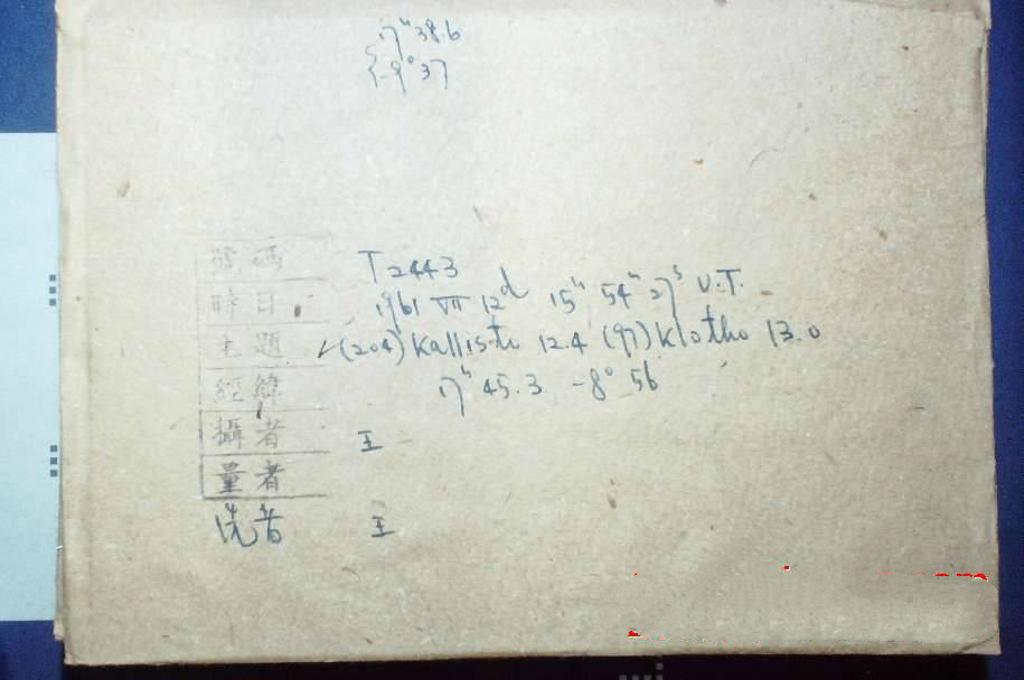 17ʰ 38.6
{-9° 37
號碼 T 2443
時日 1961 VII 12ᵈ 15ʰ 54ᵐ 27ˢ U.T.
主題 ✓(204) Kallisto 12.4 (97) Klotho 13.0
經緯 17ʰ 45.3 -8° 56
攝者 王
量者
洗者 王